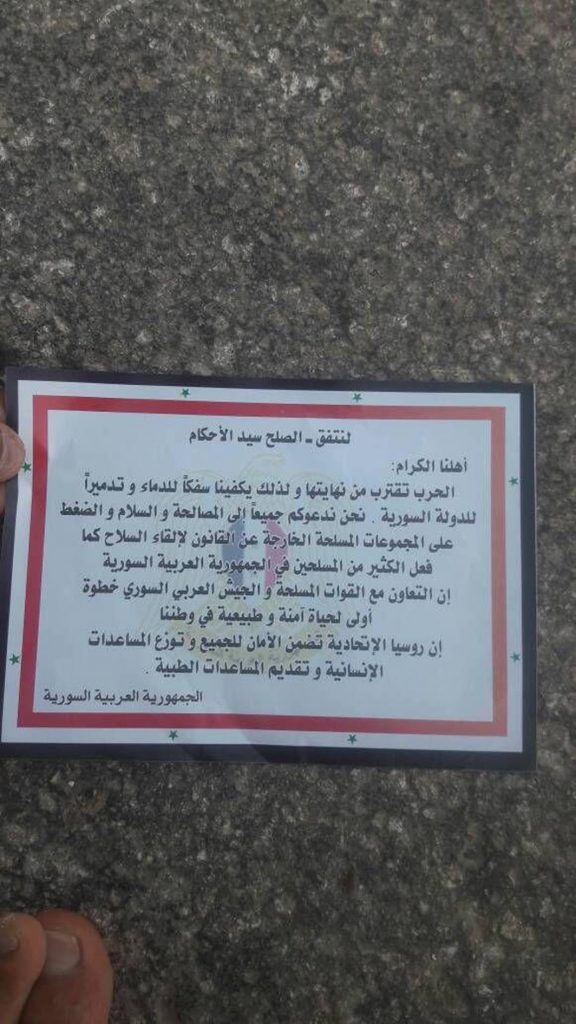 لنتفق ـ الصلح سيد الأحكام
أهلنا الكرام:
الحرب تقترب من نهايتها و لذلك يكفينا سفكاً للدماء و تدميراً
للدولة السورية . نحن ندعوكم جميعاً الى المصالحة و السلام و الضغط
على المجموعات المسلحة الخارجة عن القانون لإلقاء السلاح كما
فعل الكثير من المسلحين في الجمهورية العربية السورية
إن التعاون مع القوات المسلحة و الجيش العربي السوري خطوة
أولى لحياة آمنة و طبيعية في وطننا
إن روسيا الإتحادية تضمن الأمان للجميع و توزع المساعدات
الإنسانية و تقديم المساعدات الطبية .
الجمهورية العربية السورية